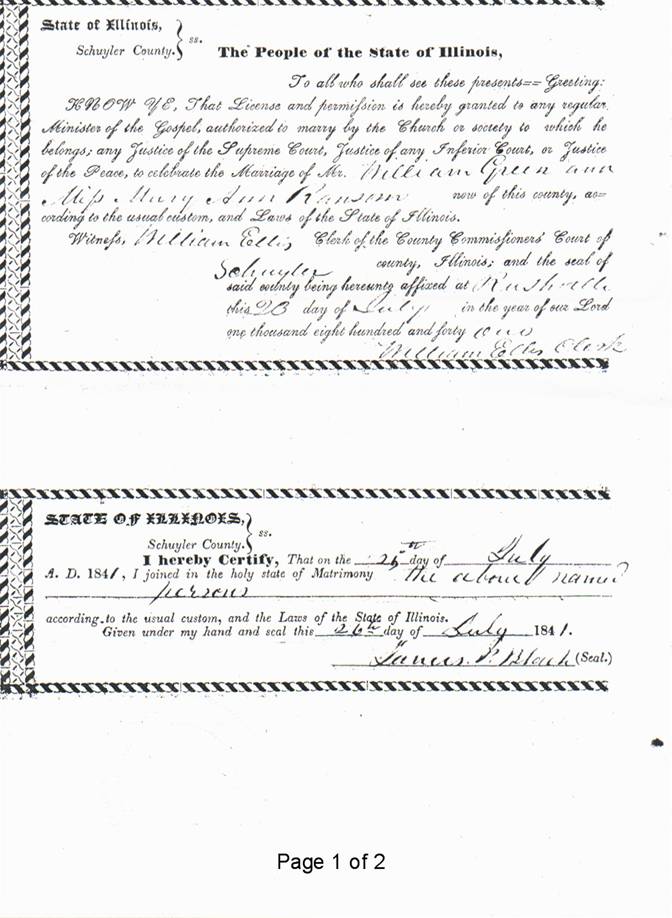 State of Illinois,
Schuyler County. } ss.
The People of the State of Illinois,
To all who shall see these presents== Greeting:
KNOW YE, That License and permission is hereby granted to any regular
Minister of the Gospel, authorized to marry by the Church or society to which he
belongs; any Justice of the Supreme Court, Justice of any Inferior Court, or Justice
of the Peace, to celebrate the Marriage of Mr. William Green and
Miss Mary Ann Ransom now of this county, ac=
cording to the usual custom, and Laws of the State of Illinois.
Witness, William Ellis Clerk of the County Commissioners' Court of
Schuyler county, Illinois; and the seal of
said county being hereunto affixed at Rushville
this 23 day of July in the year of our Lord
one thousand eight hundred and forty one
William Ellis Clerk
STATE OF ILLINOIS,
Schuyler County. } ss.
I hereby Certify, That on the 25th day of July
A. D. 1841, I joined in the holy state of Matrimony the above named
persons
according to the usual custom, and the Laws of the State of Illinois.
Given under my hand and seal this 26th day of July 1841.
James P. (Seal.)
Page 1 of 2